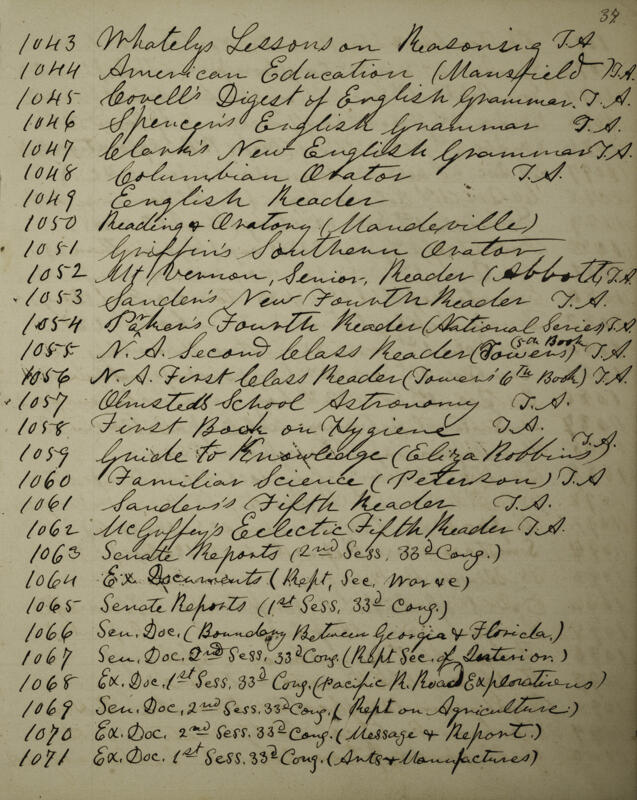 37
1043 Whatelys Lessons on Reasoning T.A
1044 American Education (Mansfield T.A.
1045 Covell's Digest of English Grammar. T.A.
1046 Spencer's English Grammar T.A.
1047 Clark's New English Grammar T.A.
1048 Columbian Orator T.A.
1049 English Reader
1050 Reading & Oratory (Mandeville)
1051 Griffin's Southern Orator
1052 Mt Vernon, Senior, Reader (Abbott, T.A.
1053 Sander's New Fourth Reader T.A.
1054 Parker's Fourth Reader (National Series) T.A.
1055 N.A. Second Class Reader (Towers 5th Book) T.A.
1056 N.A. First Class Reader (Towers' 6th Book) T.A.
1057 Olmsted's School Astronomy T.A.
1058 First Book on Hygiene T.A.
1059 Guide to Knowledge (Eliza Robbins) T.A.
1060 Familiar Science (Peterson) T.A
1061 Sanders's Fifth Reader T.A.
1062 McGuffey's Eclectic Fifth Reader T.A.
1063 Senate Reports (2nd Sess, 33d Cong.)
1064 Ex Documents (Rept, Sec. War &c)
1065 Senate Reports (1st Sess, 33d Cong.)
1066 Sen. Doc. (Boundary Between Georgia & Florida.)
1067 Sen. Doc. 2nd Sess. 33d Cong. (Rept Sec. of Interior.)
1068 Ex. Doc. 1st Sess, 33d Cong. (Pacific R. Road Explorations)
1069 Sen. Doc. 2nd Sess. 33d Cong. (Rept on Agriculture.)
1070 Ex. Doc. 2nd Sess. 33d Cong. (Message & Report.)
1071 Ex. Doc. 1st Sess. 33d Cong. (Arts & Manufactures)